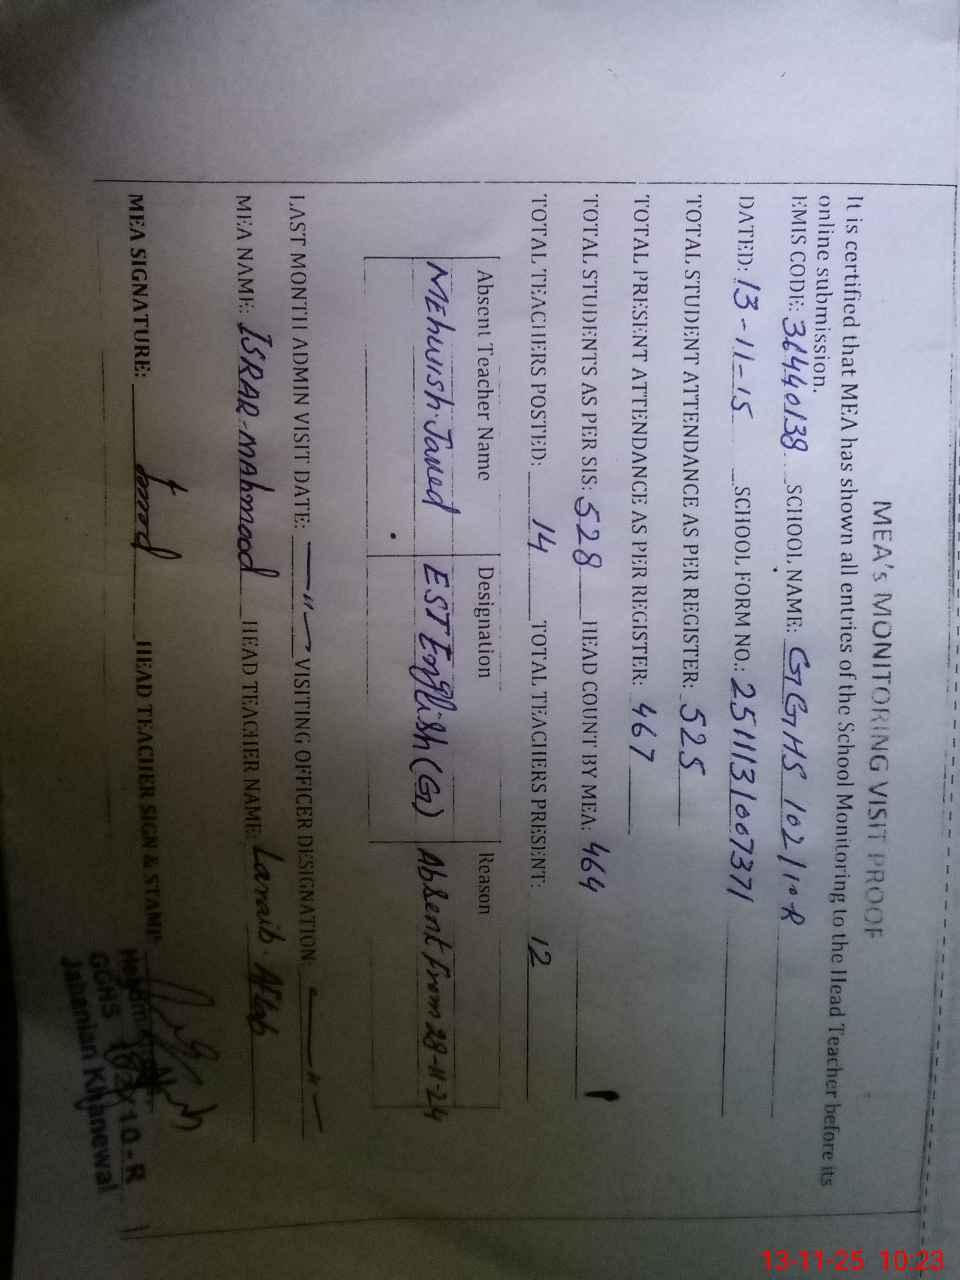 MEA's MONITORING VISIT PROOF
It is certified that MEA has shown all entries of the School Monitoring to the Head Teacher before its
online submission.
EMIS CODE: 36440138 SCHOOL NAME: GGHS 102/10-R
DATED: 13-11-15 SCHOOL FORM NO.: 2511131007371
TOTAL STUDENT ATTENDANCE AS PER REGISTER: 525
TOTAL PRESENT ATTENDANCE AS PER REGISTER: 467
TOTAL STUDENTS AS PER SIS: 528 HEAD COUNT BY MEA: 464
TOTAL TEACHERS POSTED: 14 TOTAL TEACHERS PRESENT: 12
Absent Teacher Name Designation Reason
Mehwish Javed EST English (G) Absent from 28-11-24
LAST MONTH ADMIN VISIT DATE: —"— VISITING OFFICER DESIGNATION: —"—
MEA NAME: ISRAR-Mahmood HEAD TEACHER NAME: Laraib Aftab
MEA SIGNATURE: HEAD TEACHER SIGN & STAMP
GGHS 102/10-R
Jahanian Khanewal
13-11-25 10:23